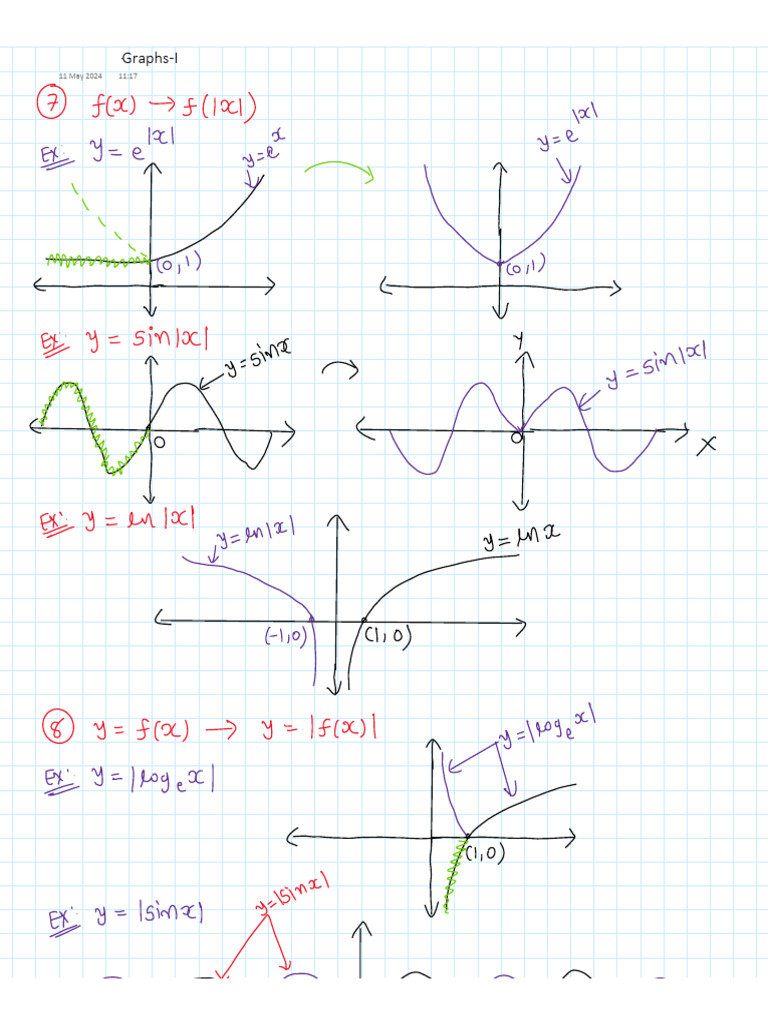 Graphs-I
11 May 2024 11:17
⑦ f(x) → f(|x|)
Ex: y = e^|x|
y = e^x
y = e^|x|
(0,1)
(0,1)
Ex: y = sin|x|
y = sinx
y
y = sin|x|
O
O
X
Ex: y = ln|x|
y = ln|x|
y = lnx
(-1,0)
(1,0)
⑧ y = f(x) → y = |f(x)|
y = |logₑx|
Ex: y = |logₑx|
(1,0)
Ex: y = |sinx|
y = |sinx|